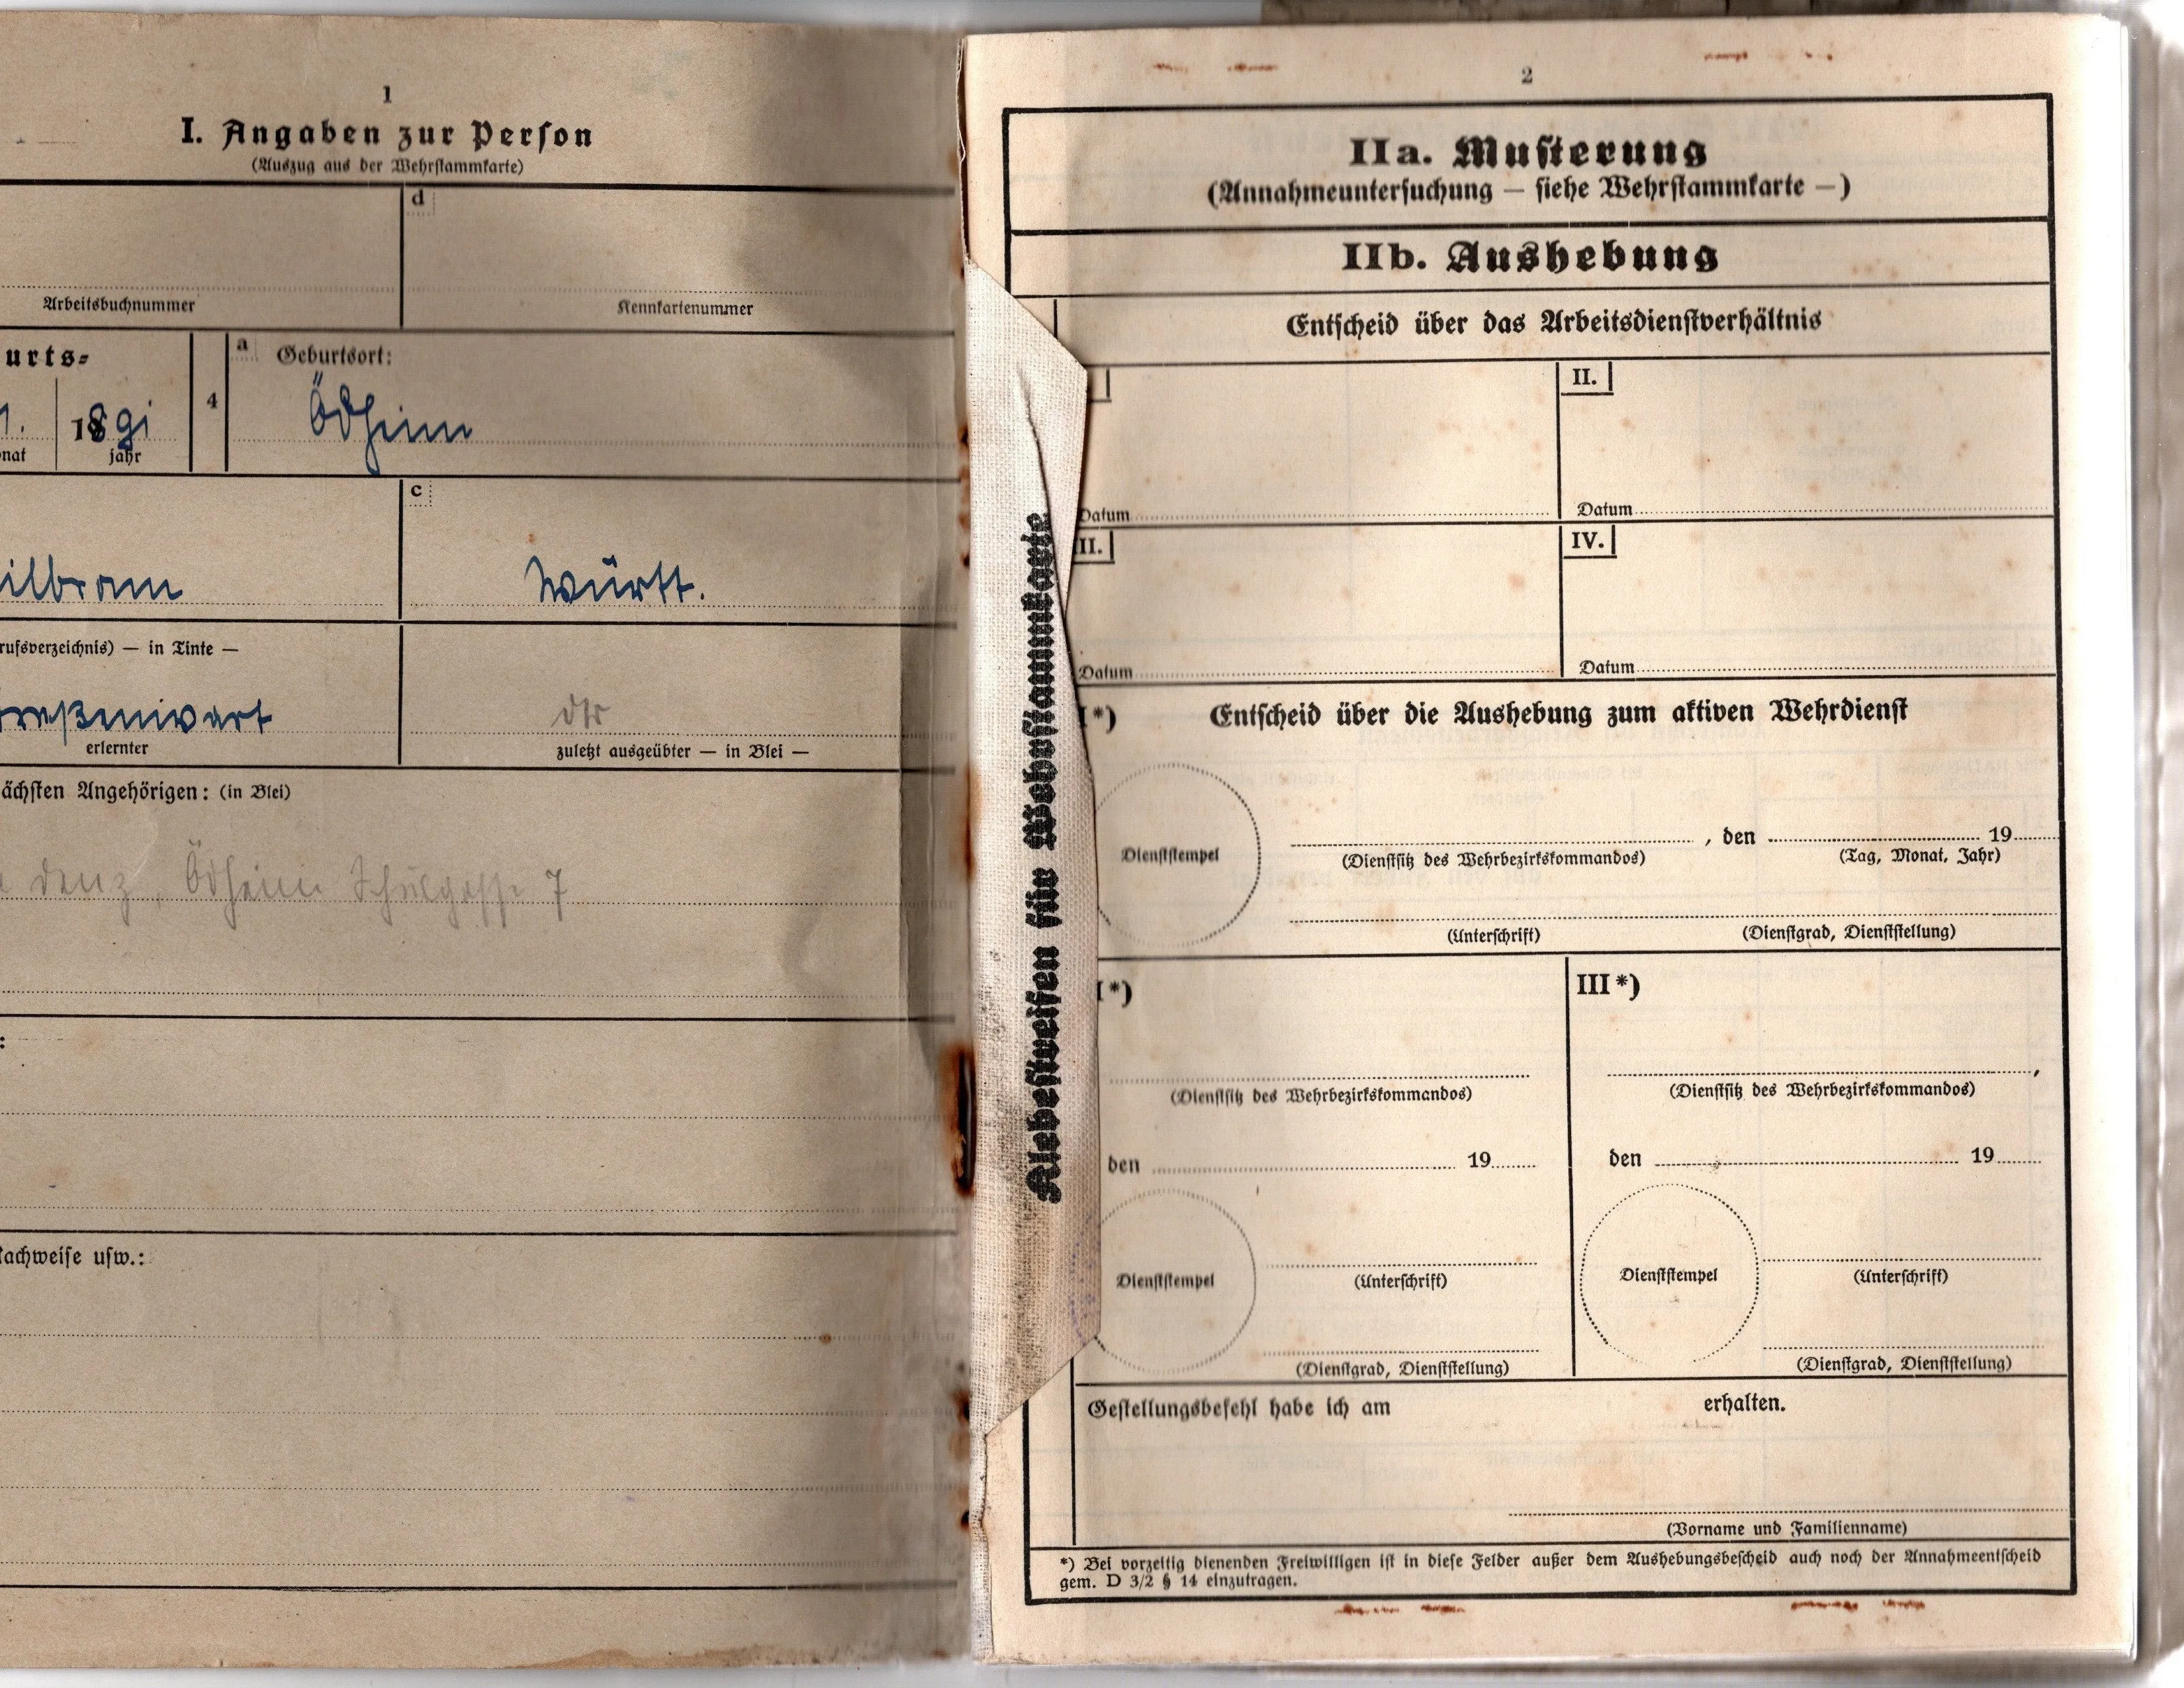 1
I. Angaben zur Person
(Auszug aus der Wehrstammkarte)
d
Arbeitsbuchnummer
Kennkartennummer
urts-
1891
nat
jahr
4
a Geburtsort:
Ödheim
ilbronn
c
Württ.
rufsverzeichnis) — in Tinte —
erlernter
zuletzt ausgeübter — in Blei —
ächsten Angehörigen: (in Blei)
denz, Ödheim Schulgasse 7
:
achweise usw.:
Klebestreifen für Wehrstammkarte
2
IIa. Musterung
(Annahmeuntersuchung — siehe Wehrstammkarte —)
IIb. Aushebung
Entscheid über das Arbeitsdienstverhältnis
II.
Datum
Datum
II.
IV.
Datum
Datum
I*)
Entscheid über die Aushebung zum aktiven Wehrdienst
Dienststempel
, den 19
(Dienstsitz des Wehrbezirkskommandos)
(Tag, Monat, Jahr)
(Unterschrift)
(Dienstgrad, Dienststellung)
I*)
III*)
(Dienstsitz des Wehrbezirkskommandos)
(Dienstsitz des Wehrbezirkskommandos)
den 19
den 19
Dienststempel
(Unterschrift)
(Dienstgrad, Dienststellung)
Dienststempel
(Unterschrift)
(Dienstgrad, Dienststellung)
Gestellungsbefehl habe ich am erhalten.
(Vorname und Familienname)
*) Bei vorzeitig dienenden Freiwilligen ist in diese Felder außer dem Aushebungsbescheid auch noch der Annahmeentscheid
gem. D 3/2 § 14 einzutragen.